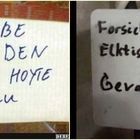 BE
DEN
HOYTE
u
Forsic
Elktis
Geva